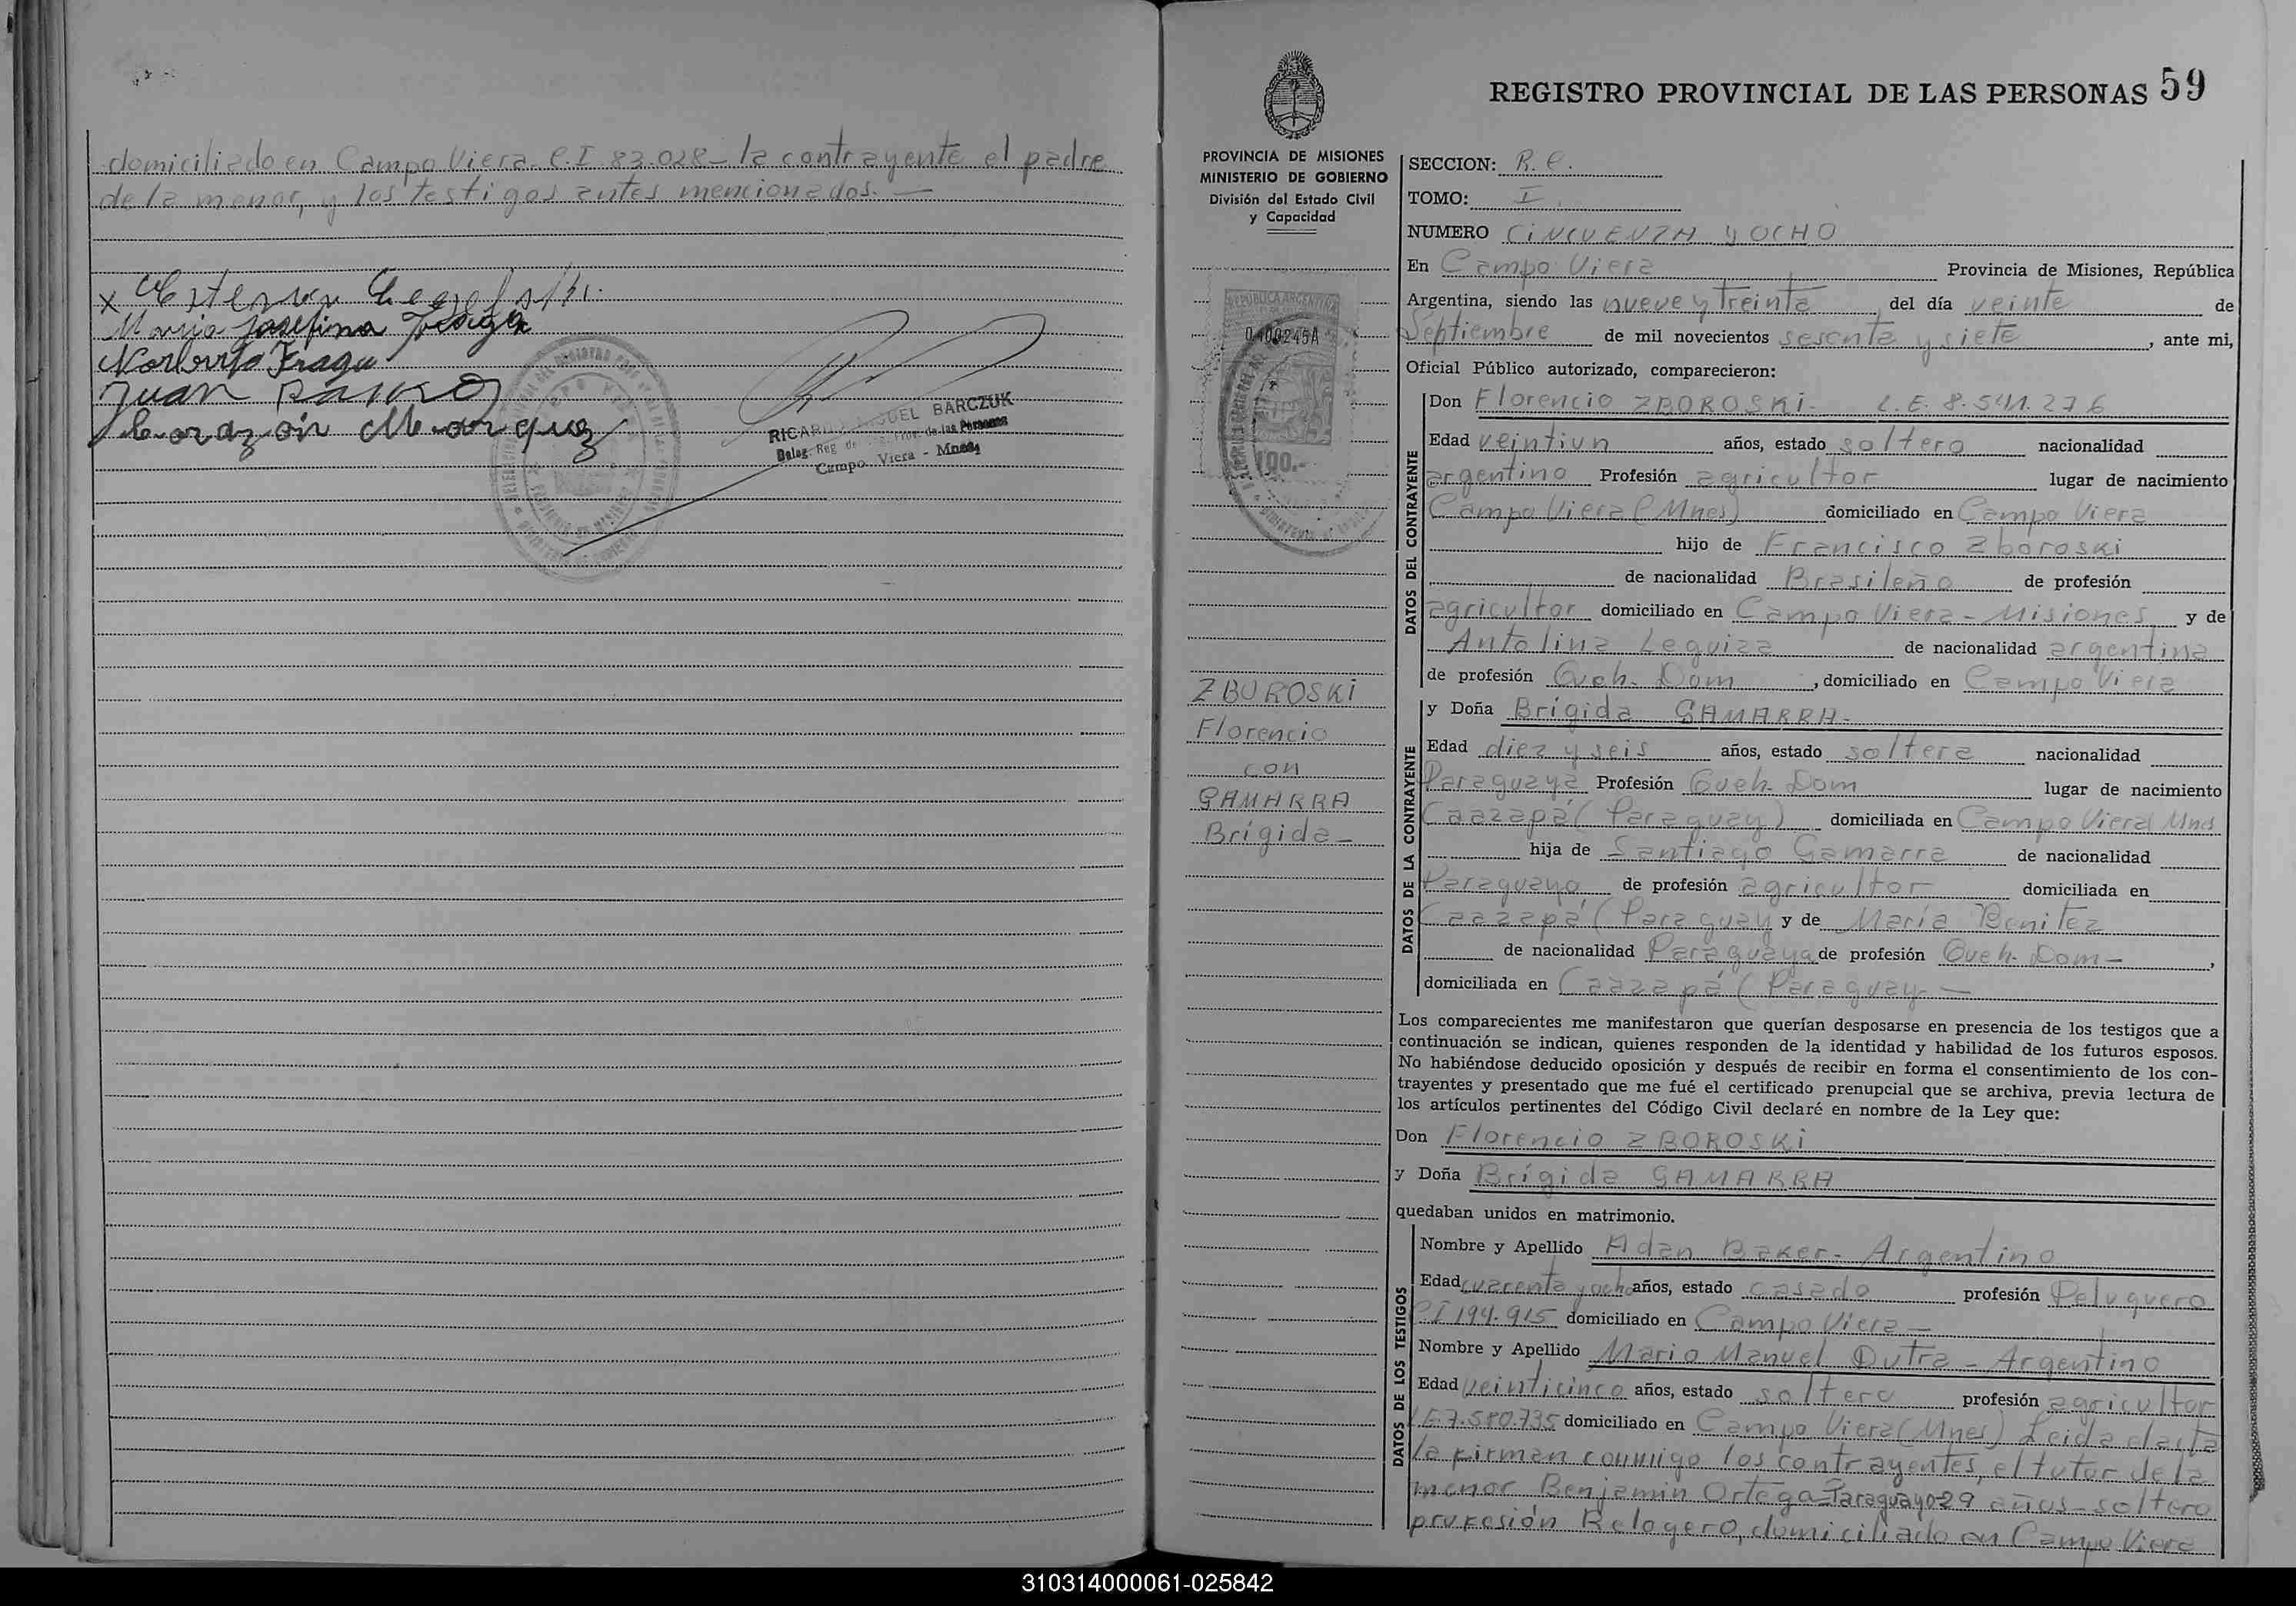 domiciliado en Campo Viera C.I 83.028 - la contrayente el padre
de la menor, y los testigos antes mencionados. —
x
Maria Josefina Fraga
Norberto Fraga
Juan
Corazón Marquez
RICARDO MIGUEL BARCZUK
Deleg. Reg. de las Prov. de las Personas
Campo Viera - Mnes.
REGISTRO PROVINCIAL DE LAS PERSONAS 59
PROVINCIA DE MISIONES
MINISTERIO DE GOBIERNO
División del Estado Civil
y Capacidad
REPUBLICA ARGENTINA
0400245A
100.-
ZBUROSKI
Florencio
con
GAMARRA
Brígida -
SECCION: R.C.
TOMO: I
NUMERO CINCUENTA Y OCHO
En Campo Viera Provincia de Misiones, República
Argentina, siendo las nueve y treinta del día veinte de
Septiembre de mil novecientos sesenta y siete, ante mi,
Oficial Público autorizado, comparecieron:
DATOS DEL CONTRAYENTE
Don Florencio ZBOROSKI. L.E. 8.541.276
Edad veintiun años, estado soltero nacionalidad
argentino Profesión agricultor lugar de nacimiento
Campo Viera (Mnes) domiciliado en Campo Viera
hijo de Francisco Zboroski
de nacionalidad Brasileño de profesión
agricultor domiciliado en Campo Viera - Misiones y de
Antolina Leguiza de nacionalidad argentina
de profesión Queh. Dom, domiciliado en Campo Viera
DATOS DE LA CONTRAYENTE
y Doña Brígida GAMARRA -
Edad diez y seis años, estado soltera nacionalidad
Paraguaya Profesión Queh. Dom lugar de nacimiento
Caazapá (Paraguay) domiciliada en Campo Viera Mnes
hija de Santiago Gamarra de nacionalidad
Paraguayo de profesión agricultor domiciliada en
Caazapá (Paraguay y de María Benitez
de nacionalidad Paraguaya de profesión Queh. Dom -,
domiciliada en Caazapá (Paraguay -
Los comparecientes me manifestaron que querían desposarse en presencia de los testigos que a
continuación se indican, quienes responden de la identidad y habilidad de los futuros esposos.
No habiéndose deducido oposición y después de recibir en forma el consentimiento de los con-
trayentes y presentado que me fué el certificado prenupcial que se archiva, previa lectura de
los artículos pertinentes del Código Civil declaré en nombre de la Ley que:
Don Florencio ZBOROSKI
y Doña Brígida GAMARRA
quedaban unidos en matrimonio.
DATOS DE LOS TESTIGOS
Nombre y Apellido Adan Baker - Argentino
Edad cuarenta y ocho años, estado casado profesión Peluquero
C.I 194.915 domiciliado en Campo Viera -
Nombre y Apellido Mario Manuel Dutra - Argentino
Edad veinticinco años, estado soltero profesión agricultor
L.E. 7.580.735 domiciliado en Campo Viera (Mnes) Leida el acta
la firman conmigo los contrayentes, el tutor de la
menor Benjamin Ortega - Paraguayo 29 años - soltero
profesión Relogero, domiciliado en Campo Viera
310314000061-025842